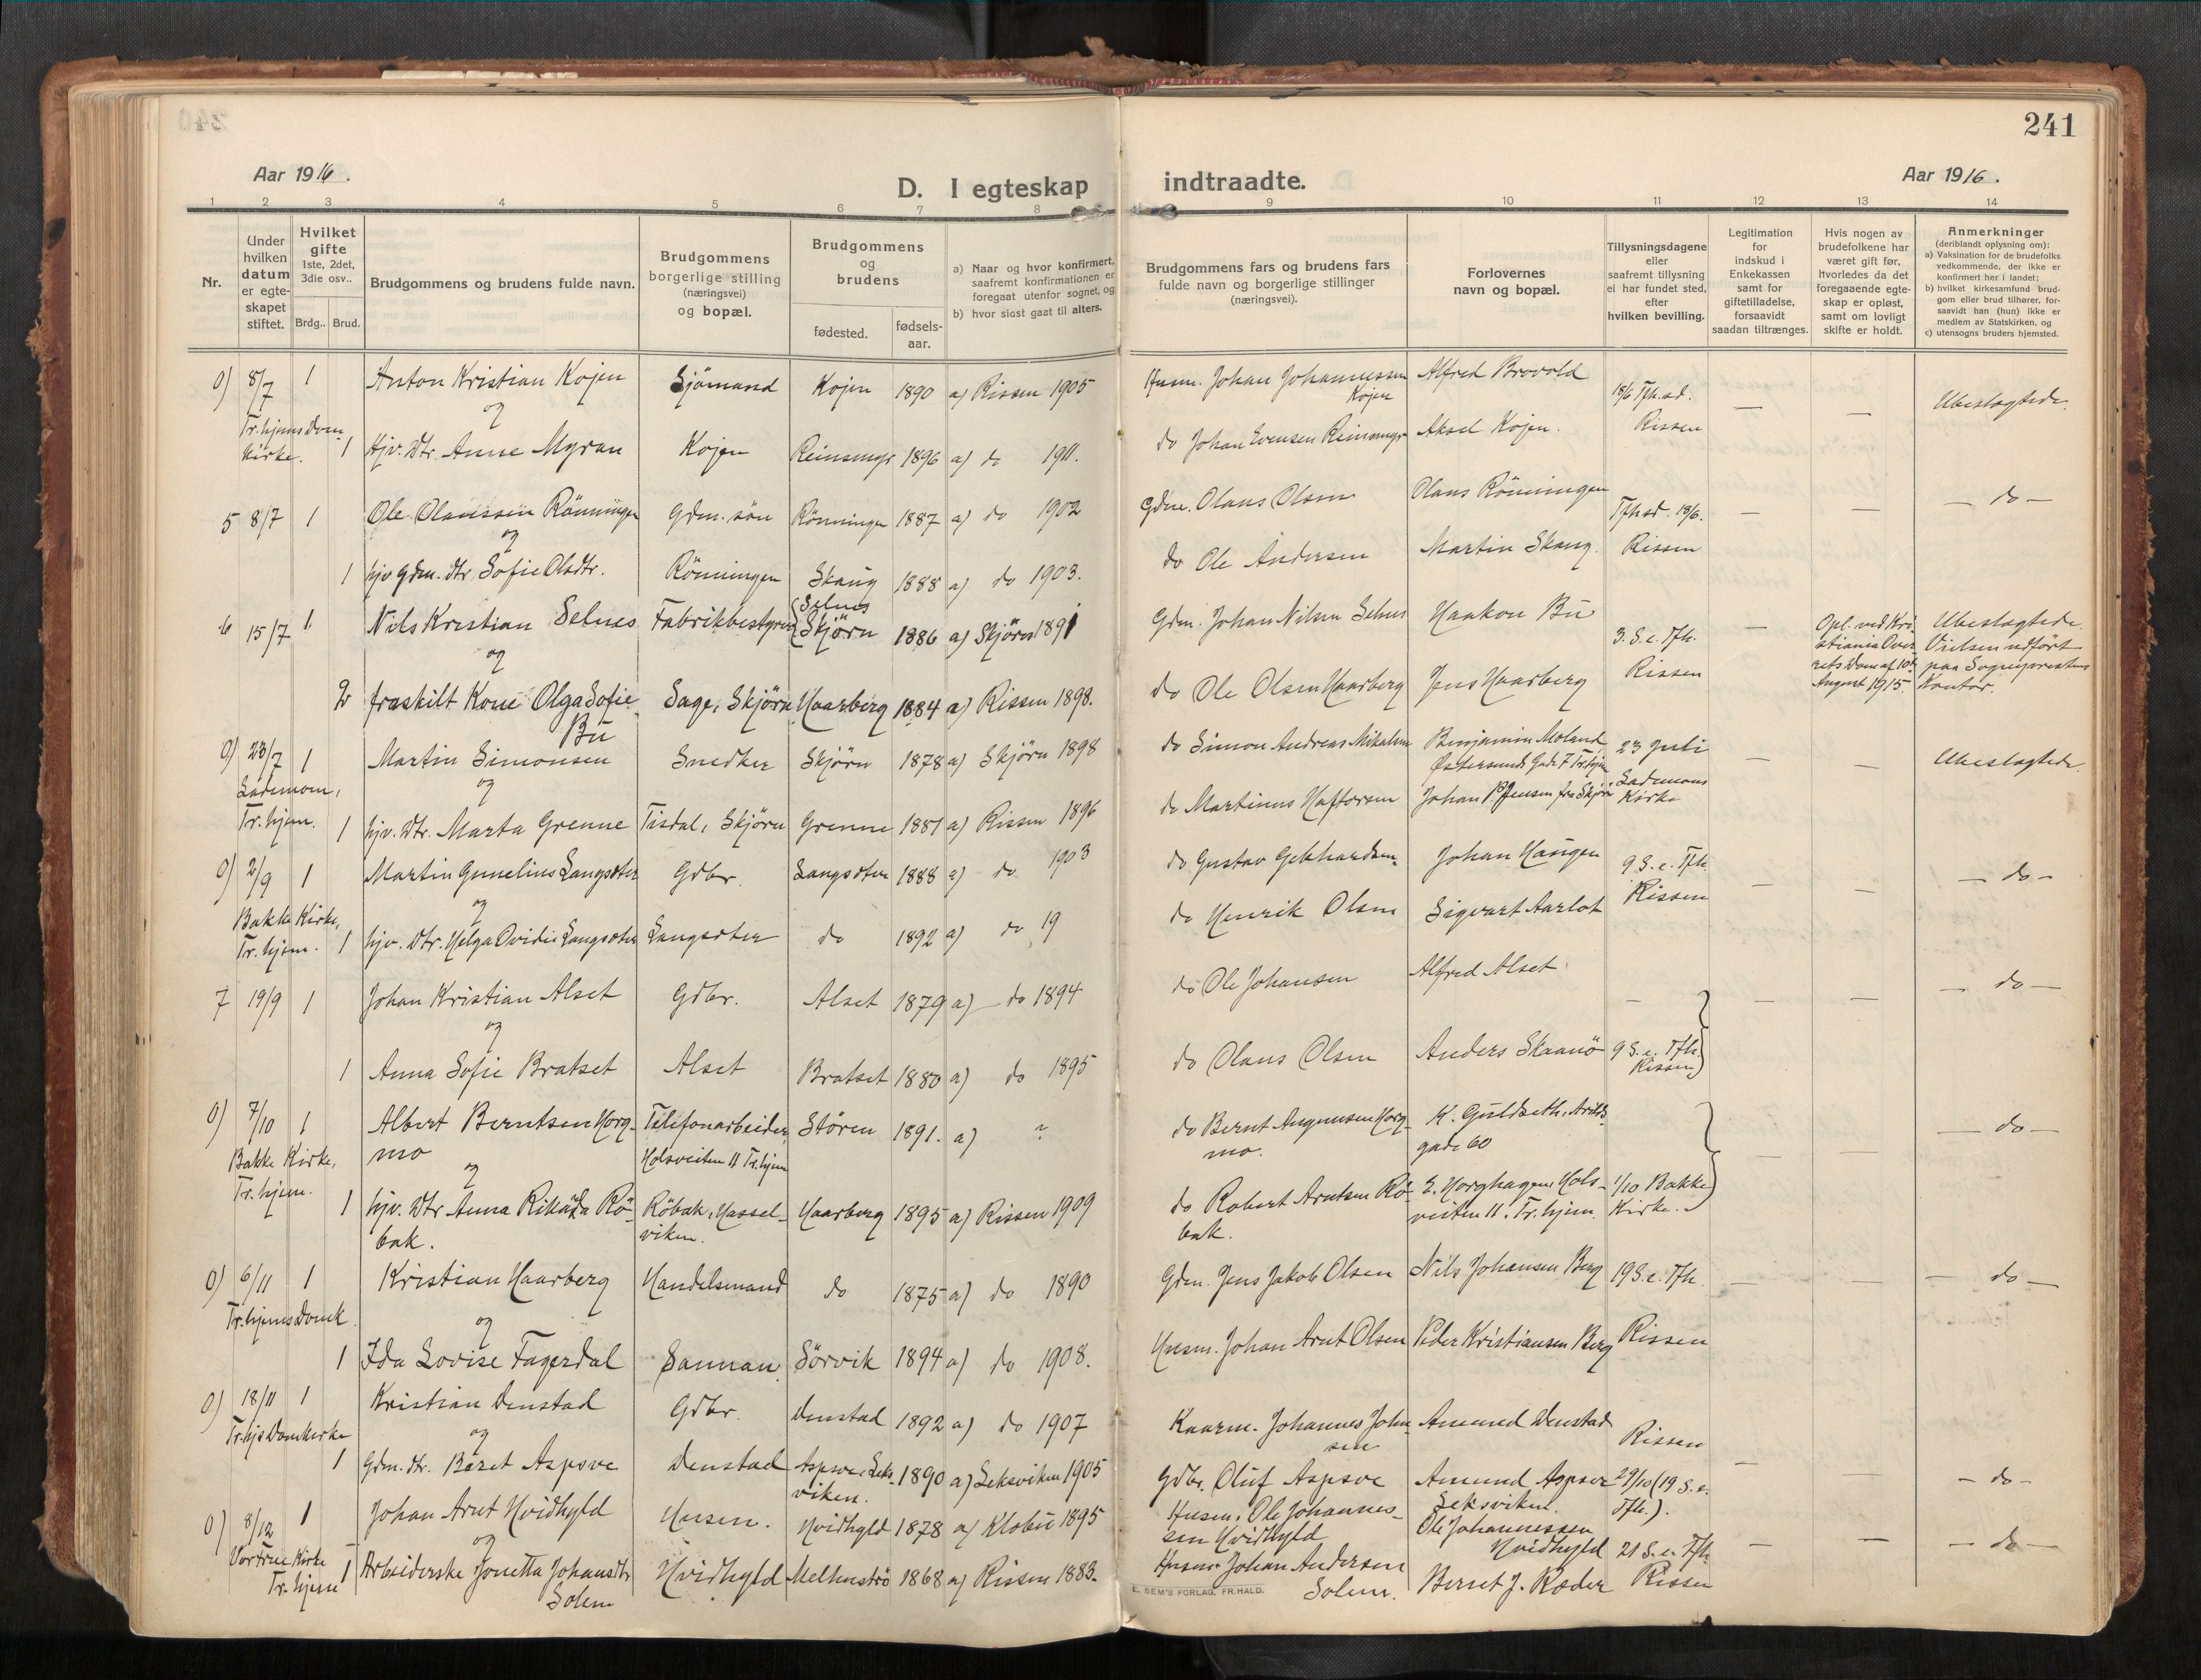 241
Aar 1916.
D. I egteskap indtraadte.
Aar 1916.
1 2 3 4 5 6 7 8 9 10 11 12 13 14
Nr.
Under hvilken datum er egteskapet stiftet.
Hvilket gifte
1ste, 2det, 3die osv..
Brdg.. Brud.
Brudgommens og brudens fulde navn.
Brudgommens borgerlige stilling (næringsvei) og bopæl.
Brudgommens og brudens
fødested.
fødsels-aar.
a) Naar og hvor konfirmert, saafremt konfirmationen er foregaat utenfor sognet, og
b) hvor sidst gaat til alters.
Brudgommens fars og brudens fars fulde navn og borgerlige stillinger (næringsvei).
Forlovernes navn og bopæl.
Tillysningsdagene eller saafremt tillysning ei har fundet sted, efter hvilken bevilling.
Legitimation for indskud i Enkekassen samt for giftetilladelse, forsaavidt saadan tiltrænges.
Hvis nogen av brudefolkene har været gift før, hvorledes da det foregaaende egteskap er opløst, samt om lovligt skifte er holdt.
Anmerkninger
(deriblandt oplysning om):
a) Vaksination for de brudefolks vedkommende, der ikke er konfirmert her i landet;
b) hvilket kirkesamfund brudgom eller brud tilhører, forsaavidt han (hun) ikke er medlem av Statskirken, og
c) utensogns bruders hjemsted.
0) 8/7 1 Anton Kristian Kojen Sjömand Kojen 1890 a) Rissen 1905 Husm. Johan Johannessen Kojen Alfred Brovold 18/6 Tfh.sd. — — Ubeslægtede.
og
Tr.hjems Dom Kirke. 1 Hjv. Dtr. Anne Myran Kojen Reinsmyr 1896 a) do 1911. do Johan Evensen Reinsmyr Aksel Kojen. Rissen
5 8/7 1 Ole Olaussen Rönningen Gdm. sön Rönningen 1887 a) do 1902 Gdm. Olaus Olsen Olaus Rönningen Tfh.sd. 18/6. — — — do —
og
1 hjv gdm. dtr. Sofie Olsdtr. Rönningen Skaug 1888 a) do 1903. do Ole Andersen Martin Skaug. Rissen
6 15/7 1 Nils Kristian Selnes Fabrikbestyrer Selnes Skjörn 1886 a) Skjörn 1891 Gdm. Johan Nilsen Selnes Haakon Bü 3. S. e. Tfh. Opl. ved Kristiania Overrets Dom af 10de August 1915. Ubeslægtede. Vielsen udført paa Sogneprestens Kontor.
og
2 fraskilt Kone Olga Sofie Bü Sage, Skjörn Haarberg 1884 a) Rissen 1898. do Ole Olsen Haarberg Jens Haarberg Rissen
0) 23/7 1 Martin Simonsen Snedker Skjörn 1878 a) Skjörn 1898 do Simon Andreas Mikalsen Benjamin Moland Østersunds Gade 7 Tr.hjem 23 Juli — — Ubeslægtede.
og
Lademoen, Tr.hjem. 1 hjv. Dtr. Marta Grenne Tisdal, Skjörn Grenne 1881 a) Rissen 1896 do Martinus Haftorsen Johan P. Jensen fra Skjörn Lademoens Kirke
0) 2/9 1 Martin Gemelius Langsæter Gdbr. Langsæter 1888 a) do 1903 do Gustav Gebhardsen Johan Haugen 9 S. e. Tfh. — — — do —
og
Bakke Kirke, Tr.hjem. 1 hjv. Dtr. Helga Ovidie Langsæter Langsæter do 1892 a) do 19 do Henrik Olsen Sigvart Aarlot Rissen
7 19/9 1 Johan Kristian Alset Gdbr. Alset 1879 a) do 1894 do Ole Johansen Alfred Alset — — — — do —
og
1 Anna Sofie Bratset Alset Bratset 1880 a) do 1895 do Olaus Olsen Anders Skaanö 9 S. e. Tfh. Rissen
0) 7/10 1 Albert Berntsen Horgmo Telefonarbeider Holsveiten 11 Tr.hjem Stören 1891. a) ? do Bernt Horgmo. K. Guldseth, gade 60 — — — do —
og
Bakke Kirke, Tr.hjem. 1 hjv. Dtr Anna Rikarda Röbak. Röbak, Hasselviken. Haarberg 1895 a) Rissen 1909 do Robert Arntsen Röbak. E. Horghagen, Holsveiten 11. Tr.hjem. 1/10 Bakke Kirke.
0) 6/11 1 Kristian Haarberg Handelsmand do 1875 a) do 1890 Gdm. Jens Jakob Olsen Nils Johansen Berg 19 S. e. Tfh. — — — do —
og
Tr.hjems Domk. 1 Ida Lovise Fagerdal Sannan. Sörvik 1894 a) do 1908. Husm. Johan Arnt Olsen Peder Kristiansen Berg Rissen
0) 18/11 1 Kristian Denstad Gdbr. Denstad 1892 a) do 1907 Kaarm. Johannes Johnsen Amund Denstad Rissen
og
Tr.hjs Domkirke 1 Gdm. dtr. Beret Aspsve Denstad Aspsve, Leksviken. 1890 a) Leksviken 1905 Gdbr. Oluf Aspsve Amund Aspsve Leksviken. 29/10 (19 S. e. Tfh.). — — do —
0) 8/12 1 Johan Arnt Hvidhyld Husm. Hvidhyld 1878 a) Klæbu 1895 Husm. Ole Johannessen Hvidhyld Ole Johannessen Hvidhyld 21 S. e. Tfh. — — — do —
og
Vor Frue Kirke Tr. hjem 1 Arbeiderske Jonetta Johansdtr. Solem Hvidhyld Melhuströ 1868 a) Rissen 1883. Husm. Johan Andersen Solem. Bernt J. Ræder Rissen
E. SEM'S FORLAG, FR.HALD.